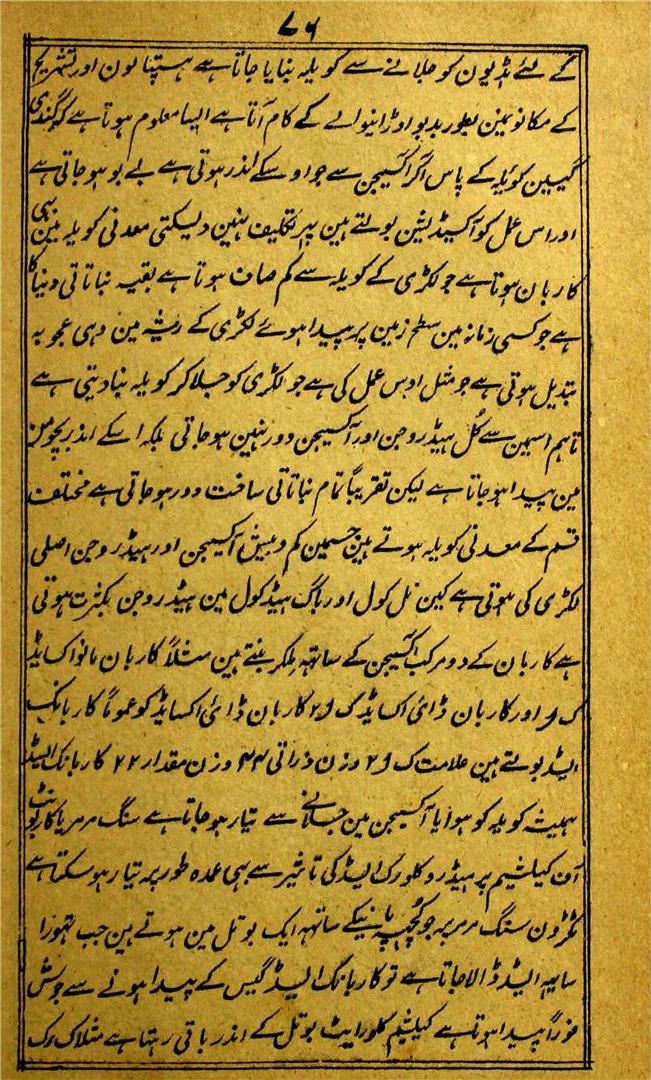 ۷۶
کے لئے ہڈیون کو جلانے سے کویلہ بنایا جاتا ہے ہسپتالون اور تشریح
کے مکانونمین بطور بدبو اوڑانیوالے کے کام آتا ہے ایسا معلوم ہوتا ہے کہ گندی
گیسین کوئلہ کے پاس اگر آکسیجن سے جو اوسکے اندر ہوتی ہے بے بو ہوجاتی ہے
اور اس عمل کو آکسیڈیشن بولتے ہین پر تکلیف ہنین دیسکتی معدنی کویلہ مین بہی
کاربان ہوتا ہے جو لکڑی کے کویلہ سے کم صاف ہوتا ہے بقیہ نباتاتی دنیا کا
ہے جو کسی زمانہ مین سطح زمین پر پیدا ہوئے لکڑی کے ریشہ مین وہی عجوبہ
تبدیل ہوتی ہے جو مثل اوس عمل کی ہے جو لکڑی کو جلا کر کویلہ بنا دیتی ہے
تاہم اسمین سے کُل ہیڈروجن اور آکسیجن دور ہنین ہوجاتی بلکہ اسکے اندر
مین پیدا ہوجاتا ہے لیکن تقریباً تمام نباتاتی ساخت دور ہوجاتی ہے مختلف
قسم کے معدنی کویلہ ہوتے ہین جسمین کم و بیش آکسیجن اور ہیڈروجن اصلی
لکڑی کی ہوتی ہے کین نل کول اور باگ ہیڈ کول مین ہیڈروجن بکثرت ہوتی
ہے کاربان کے دو مرکب آکسیجن کے ساتھہ ملکر بنتے ہین مثلاً کاربان مانو اکسایڈ
ک ا اور کاربان ڈائی اکسایڈ ک ا۲ کاربان ڈائی اکسایڈ کو عموماً کاربانک
ایسڈ بولتے ہین علامت ک ا۲ وزن ذراتی ۴۴ وزن مقدار ۲۲ کاربانک ایسڈ
ہمیشہ کویلہ کو ہوا یا آکسیجن مین جلانے سے تیار ہوجاتا ہے سنگ مرمر یا کاربونٹ
آن کیلشیم پر ہیڈروکلورک ایسڈ کی تاثیر سے بہی عمدہ طور پر تیار ہوسکتا ہے
ٹکڑون سنگ مرمر پر جو کچہہ پانیکے ساتھہ ایک بوتل مین ہوتے ہین جب تہوڑا
سا یہہ ایسڈ ڈالا جاتا ہے تو کاربانک ایسڈ گیس کے پیدا ہونے سے جوش
فوراً پیدا ہوتا ہے کیلشیم کلورایٹ بوتل کے اندر باقی رہتا ہے مثلا ک